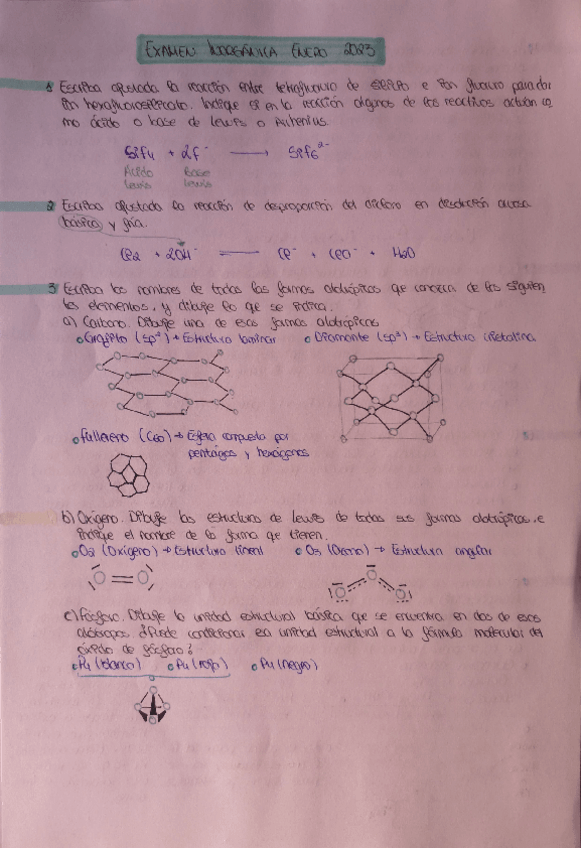 EXAMEN INORGÁNICA ENERO 2023
1 Escriba ajustada la reacción entre tetrafluoruro de silicio e ion fluoruro para dar
ion hexafluorosilicato. Indique si en la reacción algunos de los reactivos actúan co
mo ácido o base de Lewis o Arrhenius.
SiF4 + 2F⁻ → SiF6²⁻
Ácido Base
Lewis Lewis
2 Escriba ajustada la reacción de desproporción del dicloro en disolución acuosa
básica y fría.
Cl2 + 2OH⁻ ⇌ Cl⁻ + ClO⁻ + H2O
3 Escriba los nombres de todas las formas alotrópicas que conozca de los siguien
tes elementos, y dibuje lo que se indica.
a) Carbono. Dibuje una de esas formas alotrópicas
Grafito (sp²) → Estructura laminar Diamante (sp³) → Estructura cristalina
Fullereno (C60) → Esfera compuesta por
pentágonos y hexágonos
b) Oxígeno. Dibuje las estructuras de Lewis de todas sus formas alotrópicas, e
indique el nombre de la forma que tienen.
O2 (Oxígeno) → Estructura lineal O3 (Ozono) → Estructura angular
O = O O O O
c) Fósforo. Dibuje la unidad estructural básica que se encuentra en dos de esos
alótropos. ¿Puede relacionar esa unidad estructural a la fórmula molecular del
óxido de fósforo?
P4 (blanco) P4 (rojo) P4 (negro)